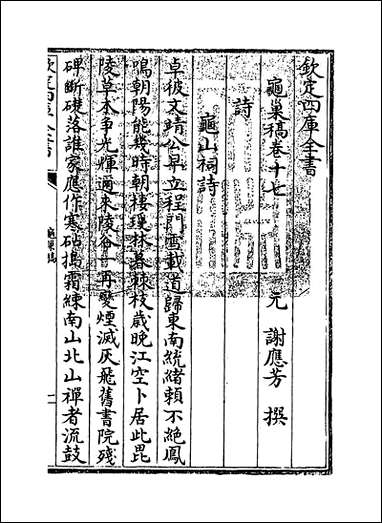 欽定四庫全書
龜巢稿卷十七
元 謝應芳 撰
詩
龜山祠詩
卓彼文靖公昇立程門雪載道歸東南統緒賴不絶鳳
鳴朝陽能幾時朝棲瓊林暮棘枝歲晚江空卜居此毘
陵草木爭光輝邇來陵谷一再變煙滅灰飛舊書院殘
碑斷礎落誰家應作寒砧搗霜練南山北山禪者流鼓
欽定四庫全書
龜巢稿
一